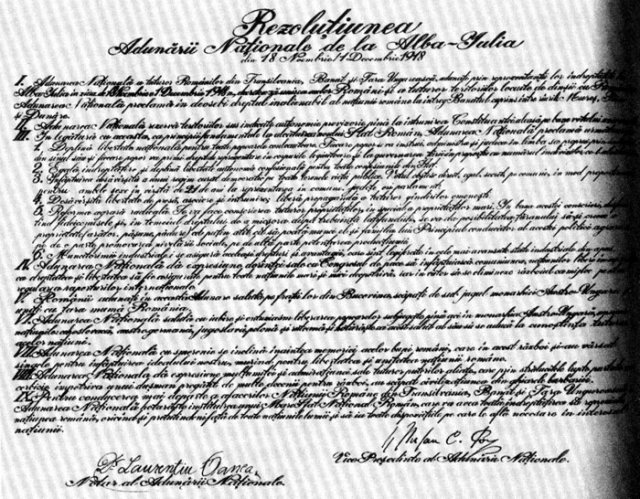 Rezoluțiunea
Adunării Naționale de la Alba-Iulia
din 18 Noembrie/1 Decembrie 1918
I. Adunarea Națională a tuturor Românilor din Transilvania, Banat și Țara Ungurească, adunați prin reprezentanții lor îndreptățiți la
Alba-Iulia în ziua de 18 Noembrie/1 Decembrie 1918, decretează unirea acelor Români și a tuturor teritoriilor locuite de dînșii cu România.
Adunarea Națională proclamă în deosebi dreptul inalienabil al națiunii române la întreg Banatul cuprins între rîurile Mureș, Tisa
și Dunăre.
II. Adunarea Națională rezervă teritoriilor sus indicate autonomie provizorie pînă la întrunirea Constituantei aleasă pe baza votului
III. În legătură cu aceasta, ca principii fundamentale la alcătuirea noului Stat Român, Adunarea Națională proclamă
1. Deplină libertate națională pentru toate popoarele conlocuitoare. Fiecare popor
din sînul său și fiecare popor va primi drept de reprezentare în corpurile legiuitoare și la guvernarea țării în proporție cu numărul indivizilor
2. Egală îndreptățire și deplină libertate autonomă confesională pentru toate confesiunile din Stat.
3. Înfăptuirea desăvîrșită a unui regim curat democratic pe toate terenele vieții publice. Votul obștesc, direct, egal, secret, pe comune, în mod proporțional,
pentru ambele sexe, în vîrstă de 21 de ani la reprezentarea în comune, județe ori parlament.
4. Desăvîrșită libertate de presă, asociere și întrunire; liberă propagandă a tuturor gîndirilor omenești.
5. Reforma agrară radicală. Se va face conscrierea tuturor proprietăților, în special a proprietăților mari. În baza acestei conscrieri,
proprietate (arător, pășune, pădure)
pe de o parte promovarea nivelării sociale, pe de altă parte, potențarea producțiunii.
6. Muncitorimei industriale i se asigură aceleași drepturi și avantagii, care sînt legiferate în cele mai avansate state industriale din apus.
IV. Adunarea Națională dă expresiune dorinței sale, ca Congresul de pace să înfăptuiască comuniunea națiunilor libere în așa chip,
ca dreptatea și libertatea să fie asigurate pentru toate națiunile mari și mici deopotrivă, iar în viitor să se elimineze războiul ca mijloc pentru
regularea raporturilor internaționale.
V. Românii adunați în această Adunare salută pe frații lor din Bucovina, scăpați de sub jugul monarhiei Austro-Ungare
uniți cu țara mumă România.
VI. Adunarea Națională salută cu iubire și entuziasm liberarea popoarelor subjugate pînă aci în monarhia Austro-Ungară,
cehoslovacă, austro-germană, jugoslavă, polonă și ruteană și hotărăște ca acest salut al său să se aducă la cunoștința tuturor
acelor națiuni.
VII. Adunarea Națională cu smerenie se închină înaintea memoriei acelor bravi români, care în acest război și-au vărsat
sîngele pentru înfăptuirea idealului nostru, murind pentru libertatea și unitatea națiunii române.
VIII. Adunarea Națională dă expresiune mulțumitei și admirațiunei sale tuturor puterilor aliate, care prin strălucitele lupte purtate cu
cerbicie împotriva unui dușman pregătit de multe decenii pentru război, au scăpat civilizațiunea din ghiarele barbariei.
IX. Pentru conducerea mai departe a afacerilor Națiunii Române din Transilvania, Banat și Țara Ungurească
Adunarea Națională hotărăște instituirea unui Mare Sfat Național Român, care va avea toată îndreptățirea să reprezinte
națiunea română, oricînd și pretutindeni, față de toate națiunile lumii și să ia toate dispozițiunile pe care le află necesare în interesul
națiunii.
Dr Laurențiu Oanea
Ștefan C. Pop
Notar al Adunării Naționale.
Vice Președinte al Adunării Naționale.